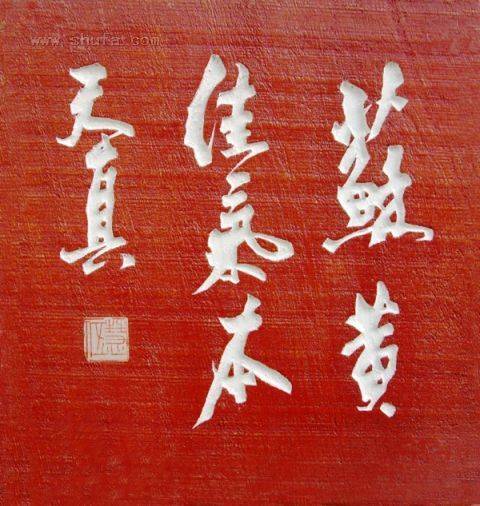 蘇黄
佳氣本
天真
www.shufa.com